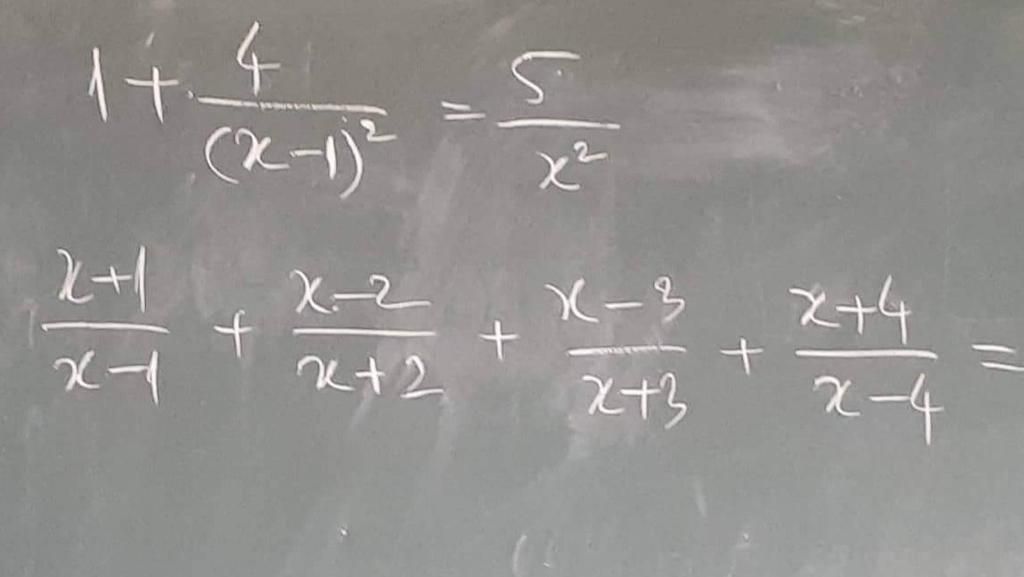 1 + 4/(x-1)² = 5/x²
x+1/x-1 + x-2/x+2 + x-3/x+3 + x+4/x-4 =